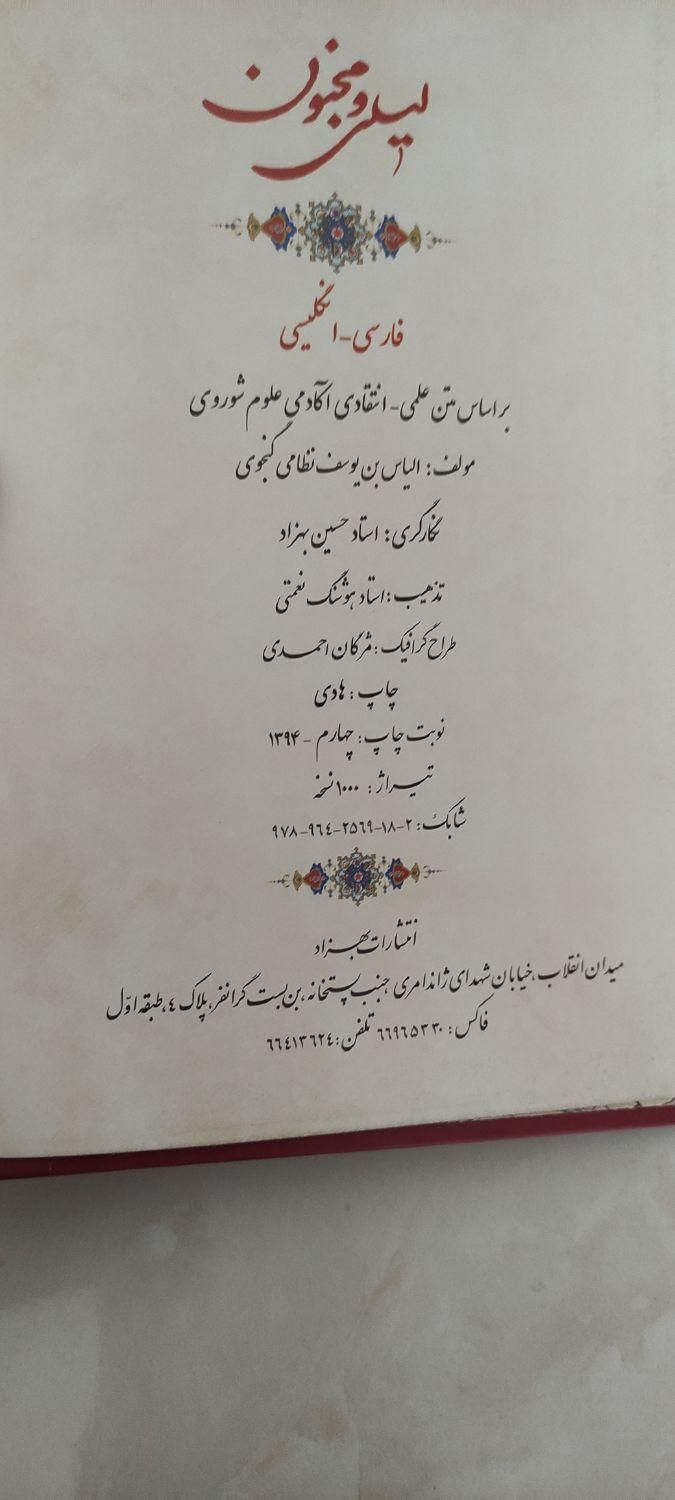 لیلی و مجنون
فارسی - انگلیسی
بر اساس متن علمی - انتقادی آکادمی علوم شوروی
مولف: الیاس بن یوسف نظامی گنجوی
نگارگری: استاد حسین بهزاد
تذهیب: استاد هوشنگ نعمتی
طراح گرافیک: مژگان احمدی
چاپ: هادی
نوبت چاپ: چهارم - ۱۳۹۴
تیراژ: ۱۰۰۰ نسخه
شابک: ۲-۱۸-۲۵۶۹-۹۶٤-۹۷۸
انتشارات بهزاد
میدان انقلاب، خیابان شهدای ژاندامری جنب پستخانه، بن بست گرانفر، پلاک ٤، طبقه اوّل
فاکس: ۶۶۹۶۵۳۳۰ تلفن: ۶۶٤۱۳۶۲٤